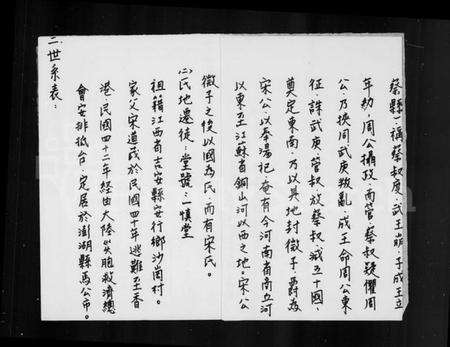 蔡縣）稱蔡叔度，武王崩，子成王立
年幼，周公攝政，而管、蔡叔疑懼周
公乃挾同武庚叛亂，成王命周公東
征，誅武庚，管叔，放蔡叔，滅五十國，
奠定東南，乃以其地封微子，爵為
宋公以奉湯祀，奄有今河南省商丘河
以東至江蘇省銅山河以西之地。宋公
微子之後以國為氏，而有宋氏。
(二)氏地遷徒：堂號：慎堂
祖籍江西省吉安縣安行鄉沙崗村。
家父宋道茂於民國四十年逃難至香
港，民國四十二年經由大陸災胞救濟總
會安排抵台，定居於澎湖縣馬公市。
二、世系表：